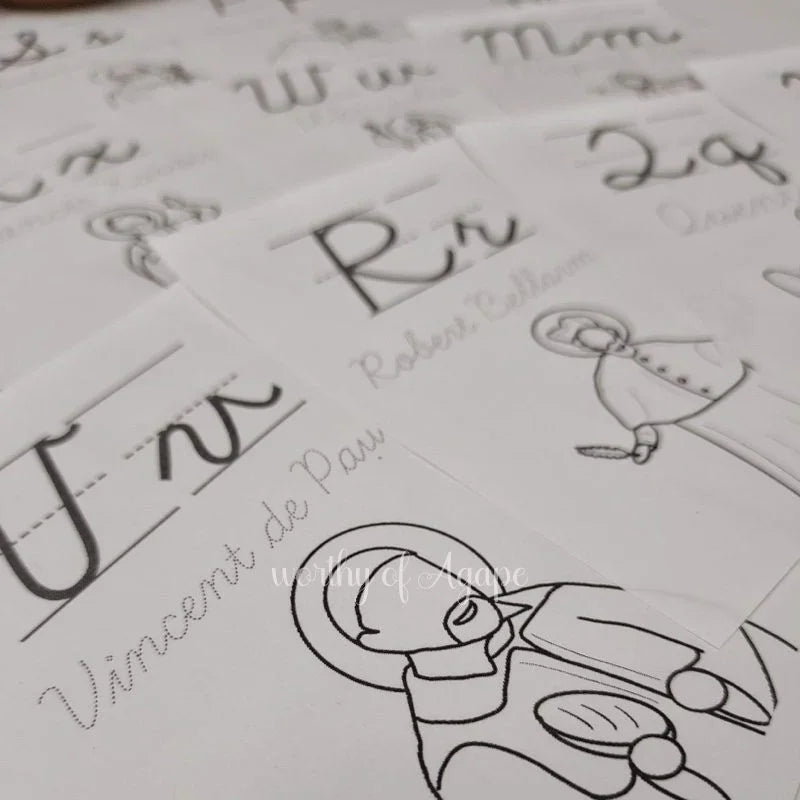 S s
M m
W w
x
Q q
R r
Robert Bellarm
V v
Vincent de Pau
worthy of Agape